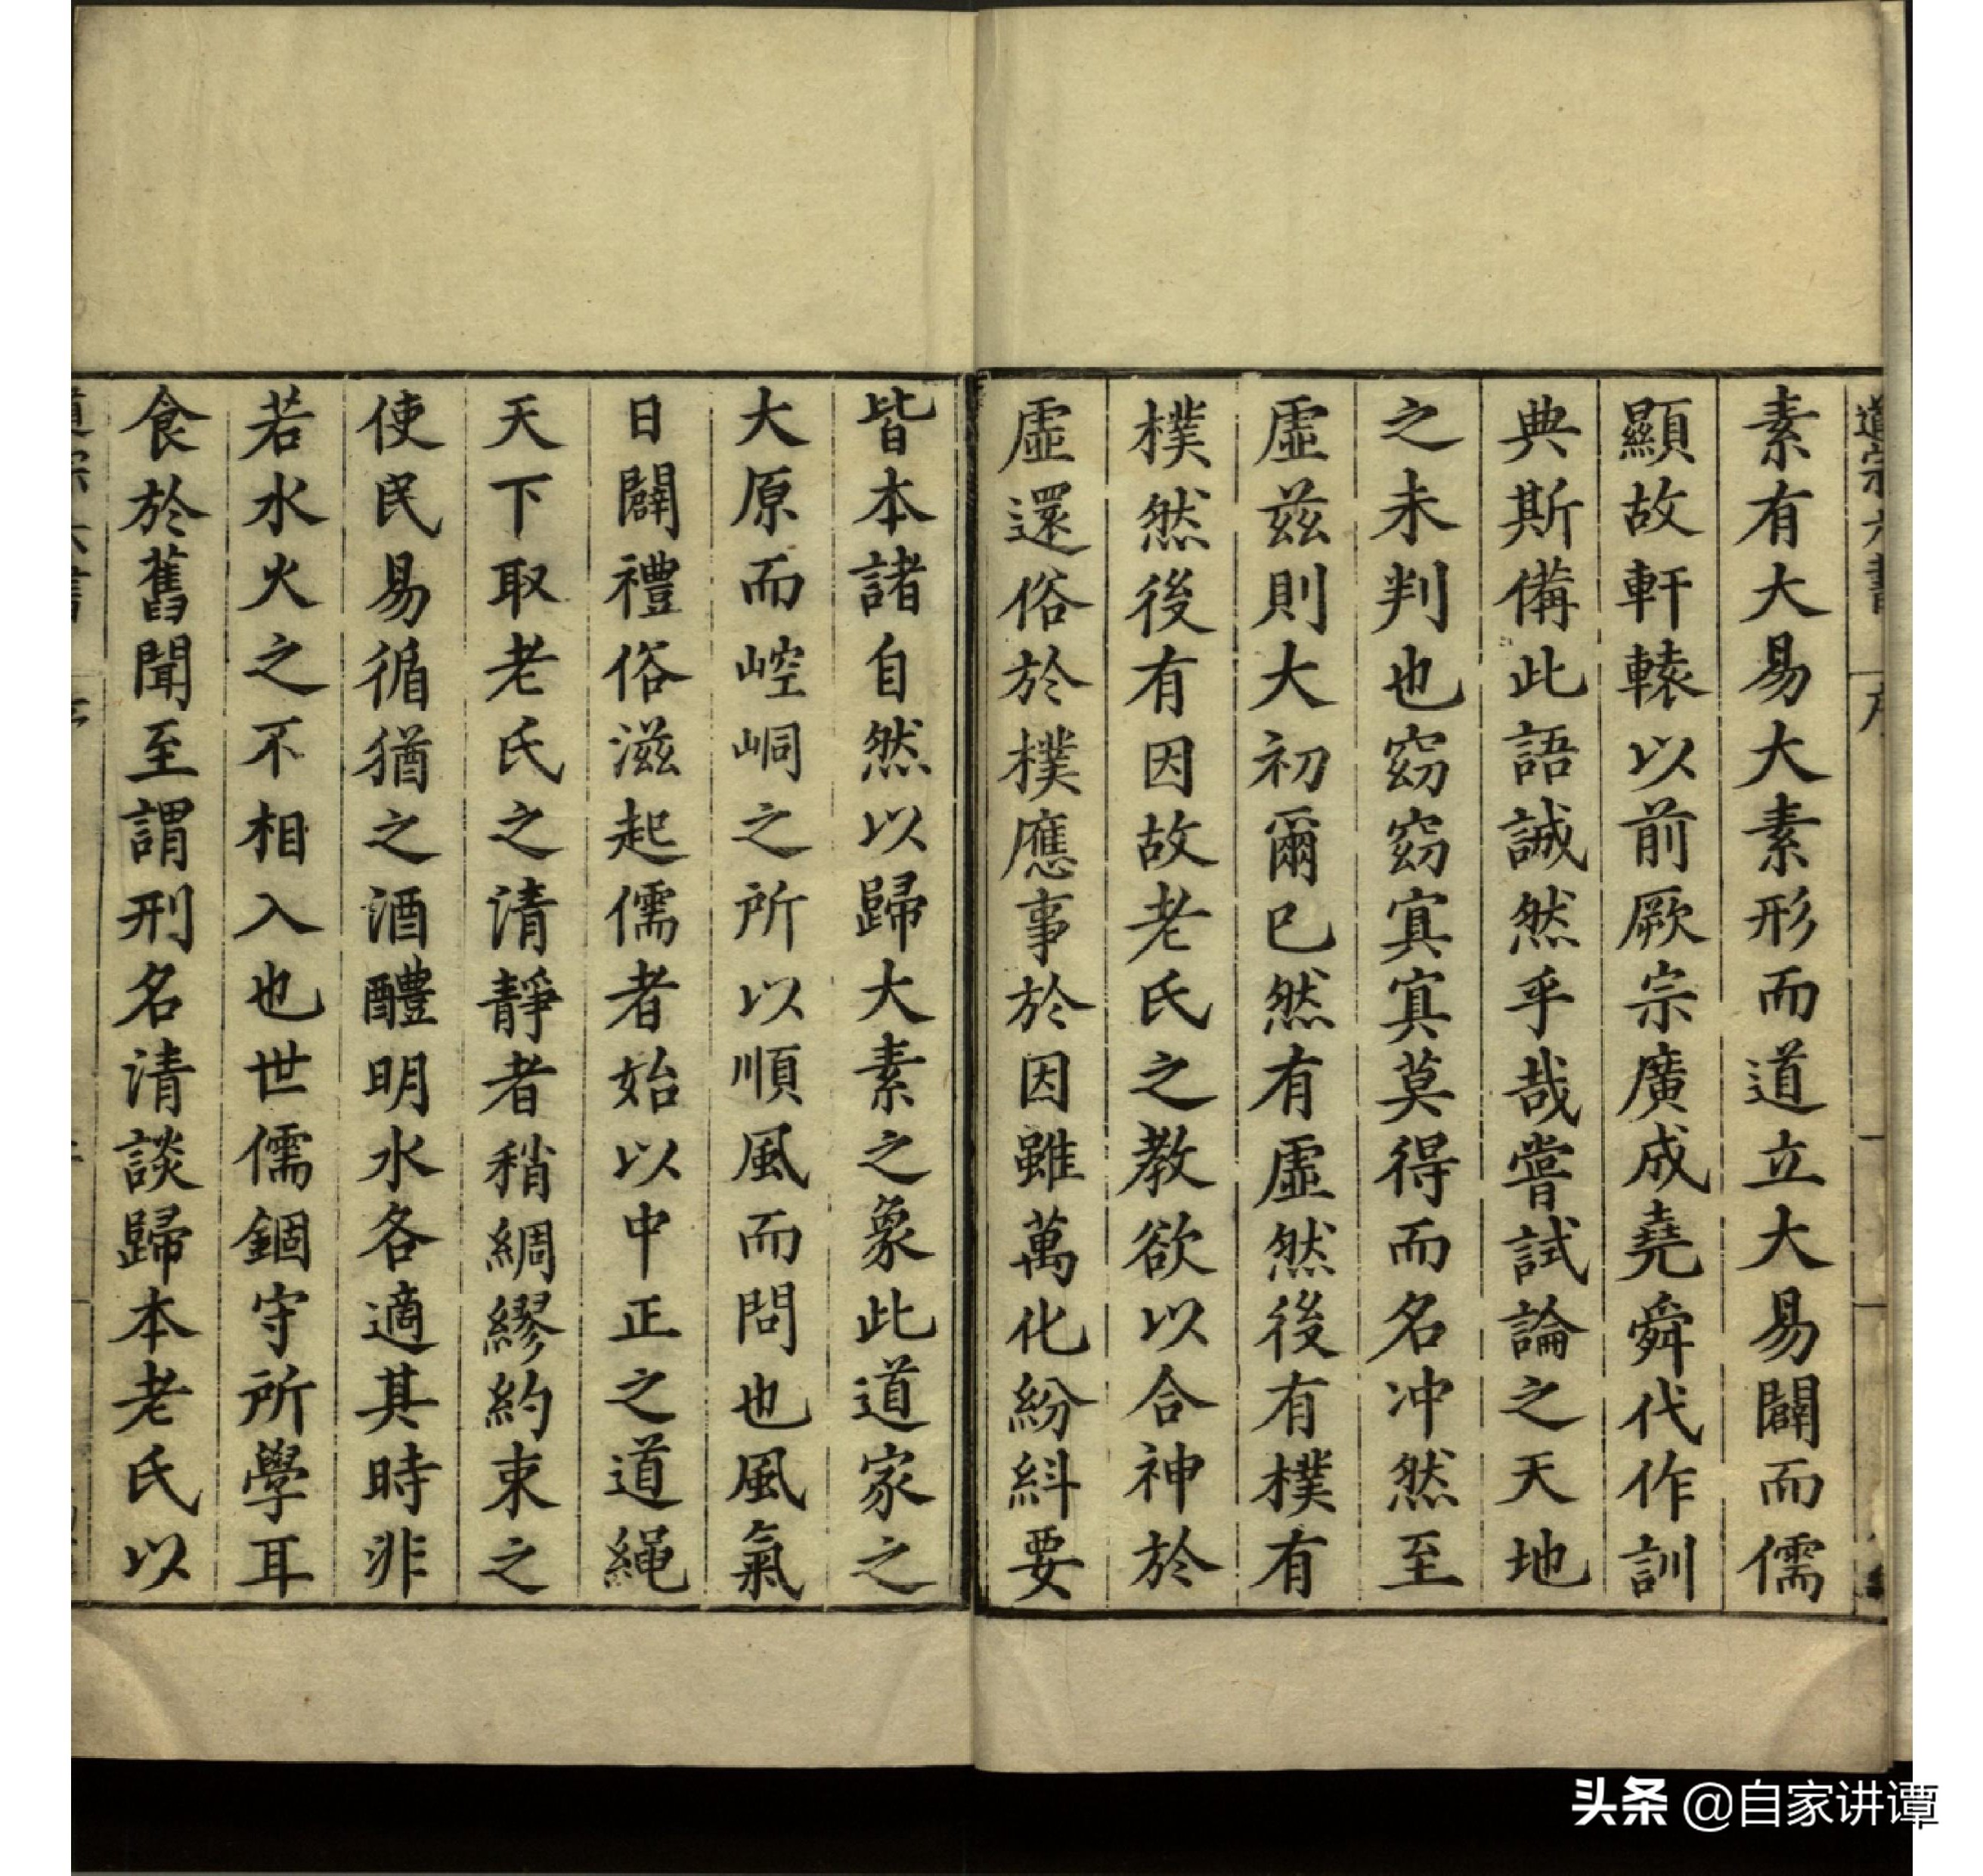 素有大易大素形而道立大易闢而儒
顯故軒轅以前厥宗廣成堯舜代作訓
典斯備此語誠然乎哉嘗試論之天地
之未判也窈窈冥冥莫得而名冲然至
虛茲則大初爾已然有虛然後有樸有
樸然後有因故老氏之教欲以合神於
虛還俗於樸應事於因雖萬化紛糾要
皆本諸自然以歸大素之象此道家之
大原而崆峒之所以順風而問也風氣
日闢禮俗滋起儒者始以中正之道繩
天下取老氏之清靜者稍綢繆約束之
使民易循猶之酒醴明水各適其時非
若水火之不相入也世儒錮守所學耳
食於舊聞至謂刑名清談歸本老氏以
头条 @自家讲谭